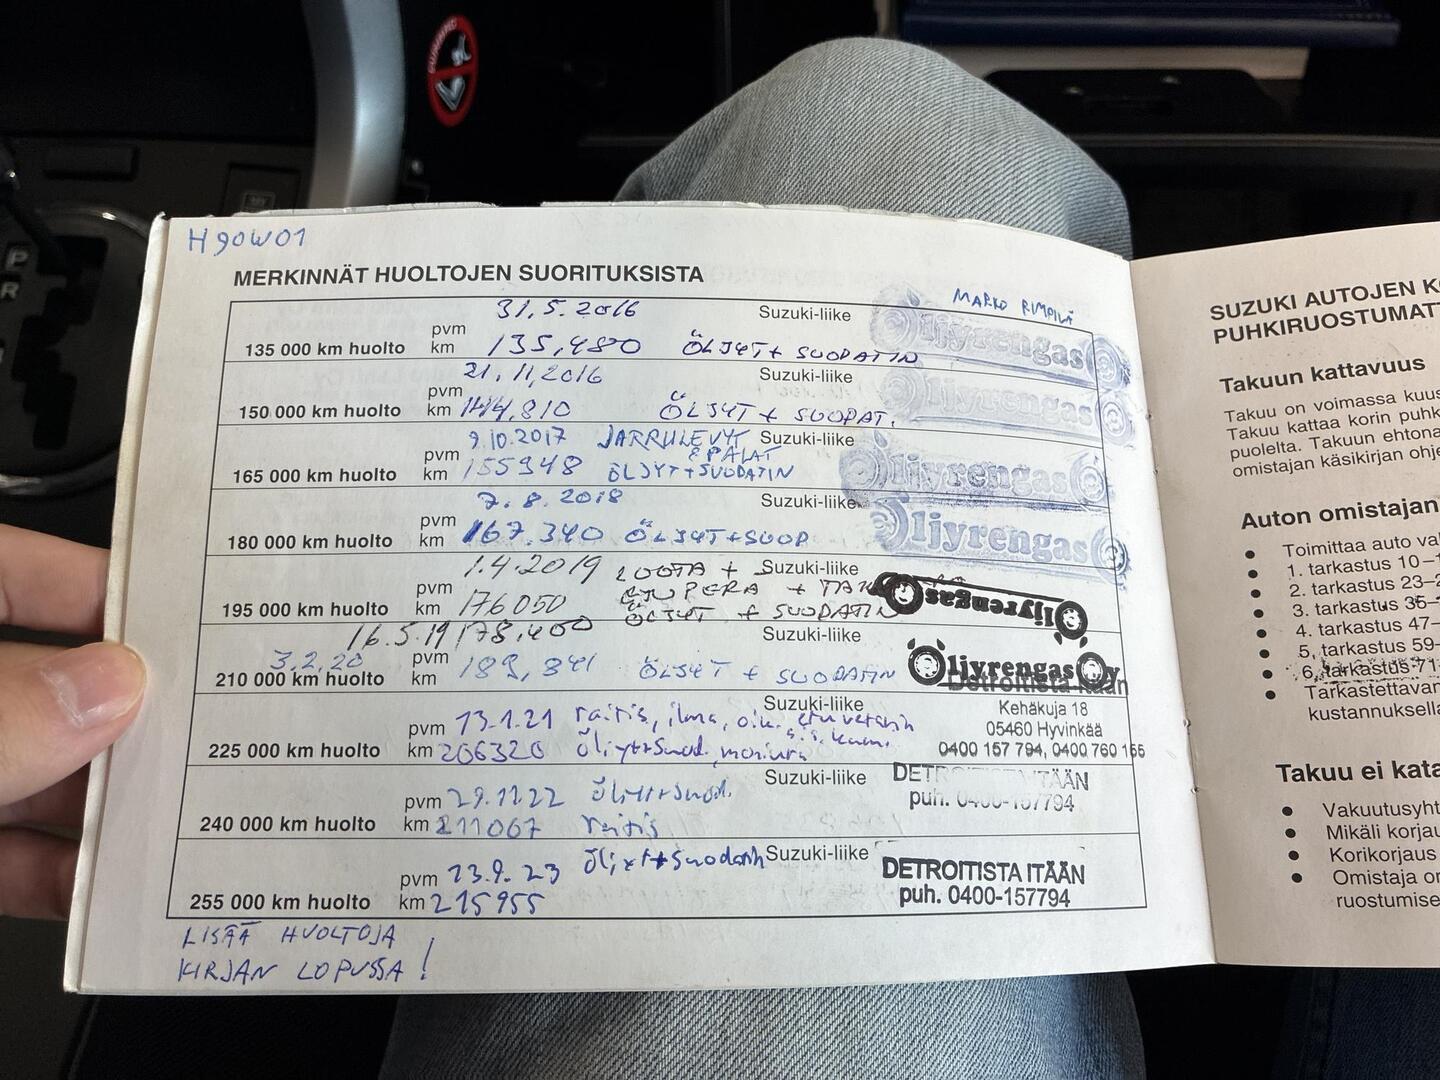 H90W01
MERKINNÄT HUOLTOJEN SUORITUKSISTA
MARKO RIMPILÄ
31.5.2016 Suzuki-liike
135 000 km huolto pvm km 135,480 ÖLJYT + SUODATIN Öljyrengas
21.11.2016 Suzuki-liike
150 000 km huolto pvm km 144,810 ÖLJYT + SUODAT. Öljyrengas
9.10.2017 JARRULEVYT Suzuki-liike
&PALAT
165 000 km huolto pvm km 155948 ÖLJYT+SUODATIN Öljyrengas
7.8.2018 Suzuki-liike
180 000 km huolto pvm km 167.340 ÖLJYT+SUOD Öljyrengas
1.4.2019 LOOTA + Suzuki-liike
+
195 000 km huolto pvm km 176050 ÖLJYT + SUODATIN Öljyrengas
16.5.19 178,400 Suzuki-liike
3.2.20
210 000 km huolto pvm km 189,841 ÖLJYT + SUODATIN Öljyrengas Oy
Detroitista Itään
Suzuki-liike Kehäkuja 18
pvm 13.1.21 raitis, ilma, 05460 Hyvinkää
225 000 km huolto km 206320 Öljyt+Suod. 0400 157 794, 0400 760 155
Suzuki-liike DETROITISTA ITÄÄN
pvm 29.11.22 Öljyt+Suod. puh. 0400-157794
240 000 km huolto km 211067 raitis
Suzuki-liike DETROITISTA ITÄÄN
pvm 13.9.23 Öljyt+Suodatin puh. 0400-157794
255 000 km huolto km 215955
LISÄÄ HUOLTOJA
KIRJAN LOPUSSA!
SUZUKI AUTOJEN
PUHKIRUOSTUMATT
Takuun kattavuus
Takuu on voimassa kuus
Takuu kattaa korin puhk
puolelta. Takuun ehtona
omistajan käsikirjan ohje
Auton omistajan
• Toimittaa auto val
• 1. tarkastus 10–1
• 2. tarkastus 23–2
• 3. tarkastus 35–
• 4. tarkastus 47–
• 5. tarkastus 59–
• 6. tarkastus 71
• Tarkastettavan
kustannuksella
Takuu ei kata
• Vakuutusyht
• Mikäli korjau
• Korikorjaus
• Omistaja on
ruostumise
P
R